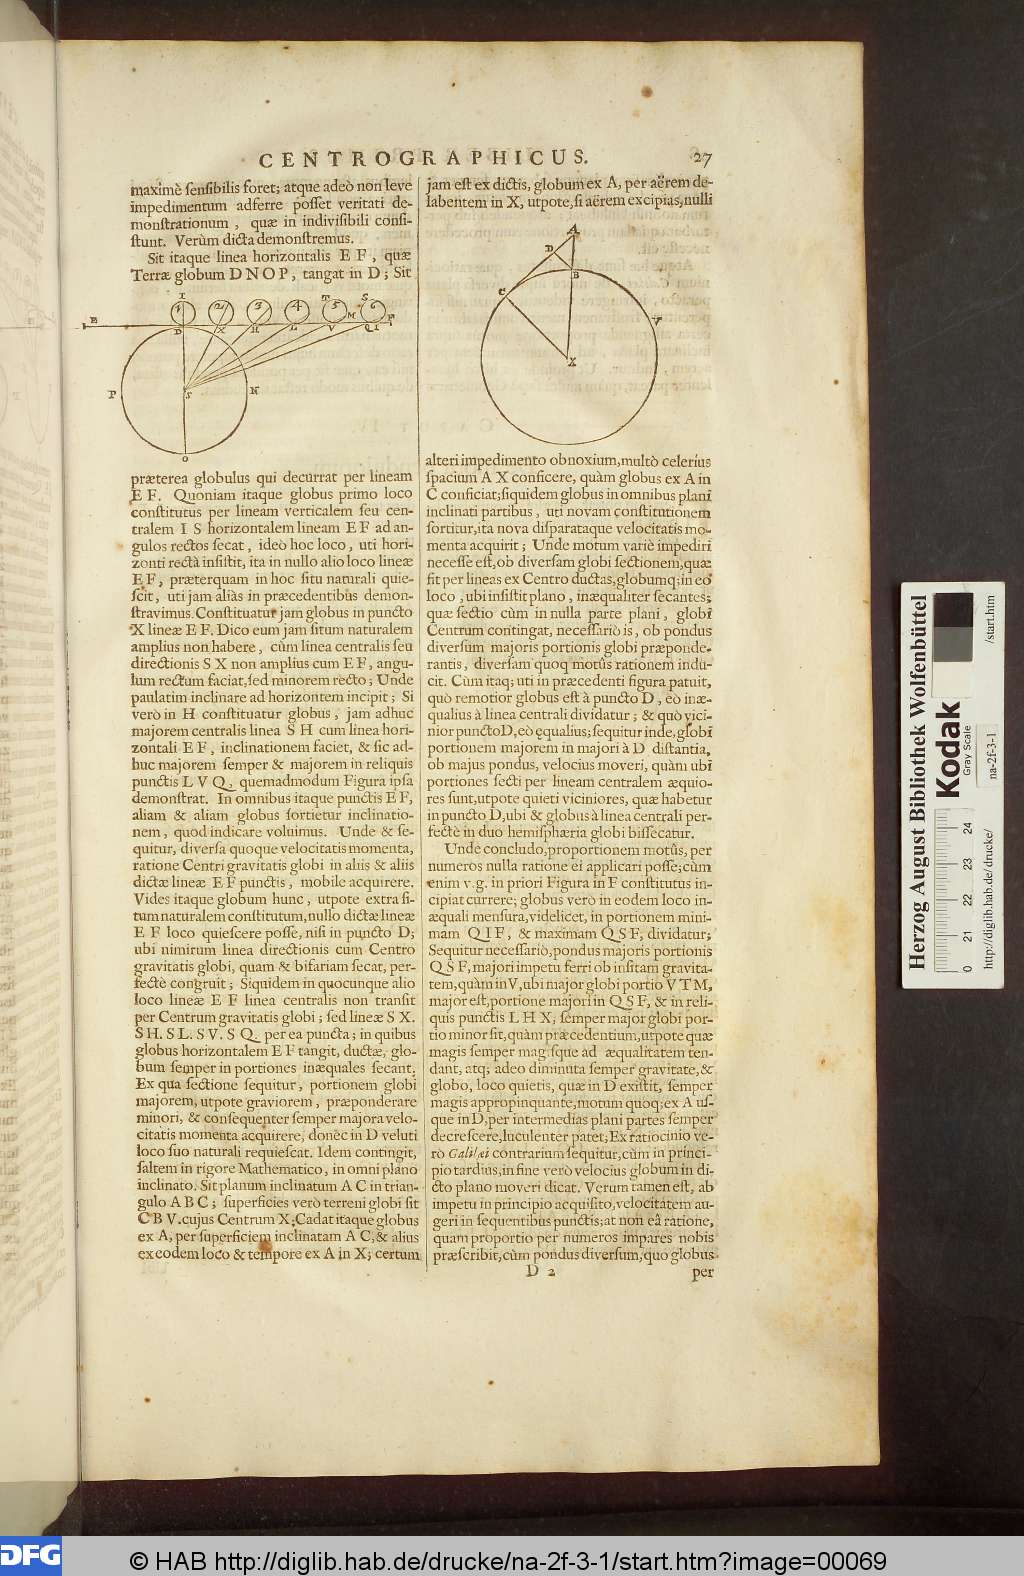 CENTROGRAPHICUS.
27
maximè ſenſibilis foret; atque adeò non leve
impedimentum adferre poſſet veritati de-
monſtrationum, quæ in indiviſibili conſi-
ſtunt. Verùm dicta demonſtremus.
Sit itaque linea horizontalis E F, quæ
Terræ globum D N O P, tangat in D; Sit
I
1 2 3 4 5 6
T S
E D X H L V M Q I F
P S N
O
præterea globulus qui decurrat per lineam
E F. Quoniam itaque globus primo loco
conſtitutus per lineam verticalem ſeu cen-
tralem I S horizontalem lineam E F ad an-
gulos rectos ſecat, ideò hoc loco, uti hori-
zonti rectà inſiſtit, ita in nullo alio loco lineæ
E F, præterquam in hoc ſitu naturali quie-
ſcit, uti jam aliàs in præcedentibus demon-
ſtravimus. Conſtituatur jam globus in puncto
X lineæ E F. Dico eum jam ſitum naturalem
amplius non habere, cùm linea centralis ſeu
directionis S X non amplius cum E F, angu-
lum rectum faciat, ſed minorem recto; Unde
paulatim inclinare ad horizontem incipit; Si
verò in H conſtituatur globus, jam adhuc
majorem centralis linea S H cum linea hori-
zontali E F, inclinationem faciet, & ſic ad-
huc majorem ſemper & majorem in reliquis
punctis L V Q, quemadmodum Figura ipſa
demonſtrat. In omnibus itaque punctis E F,
aliam & aliam globus ſortietur inclinatio-
nem, quod indicare voluimus. Unde & ſe-
quitur, diverſa quoque velocitatis momenta,
ratione Centri gravitatis globi in aliis & aliis
dictæ lineæ E F punctis, mobile acquirere.
Vides itaque globum hunc, utpote extra ſi-
tum naturalem conſtitutum, nullo dictæ lineæ
E F loco quieſcere poſſe, niſi in puncto D;
ubi nimirum linea directionis cum Centro
gravitatis globi, quam & bifariam ſecat, per-
fectè congruit; Siquidem in quocunque alio
loco lineæ E F linea centralis non tranſit
per Centrum gravitatis globi; ſed lineæ S X.
S H. S L. S V. S Q. per ea puncta; in quibus
globus horizontalem E F tangit, ductæ, glo-
bum ſemper in portiones inæquales ſecant.
Ex qua ſectione ſequitur, portionem globi
majorem, utpote graviorem, præponderare
minori, & conſequenter ſemper majora velo-
citatis momenta acquirere, donec in D veluti
loco ſuo naturali requieſcat. Idem contingit,
ſaltem in rigore Mathematico, in omni plano
inclinato. Sit planum inclinatum A C in trian-
gulo A B C; ſuperficies verò terreni globi ſit
C B V. cujus Centrum X; Cadat itaque globus
ex A, per ſuperficiem inclinatam A C, & alius
ex eodem loco & tempore ex A in X; certum
jam eſt ex dictis, globum ex A, per aërem de-
labentem in X, utpote, ſi aërem excipias, nulli
A
D
B
C
V
X
alteri impedimento obnoxium, multò celerius
ſpacium A X conficere, quàm globus ex A in
C conficiat; ſiquidem globus in omnibus plani
inclinati partibus, uti novam conſtitutionem
ſortitur, ita nova diſparataque velocitatis mo-
menta acquirit; Unde motum variè impediri
neceſſe eſt, ob diverſam globi ſectionem, quæ
fit per lineas ex Centro ductas, globumq; in eo
loco, ubi inſiſtit plano, inæqualiter ſecantes;
quæ ſectio cùm in nulla parte plani, globi
Centrum contingat, neceſſariò is, ob pondus
diverſum majoris portionis globi præponde-
rantis, diverſam quoq motûs rationem indu-
cit. Cùm itaq; uti in præcedenti figura patuit,
quò remotior globus eſt à puncto D, eò inæ-
qualius à linea centrali dividatur; & quò vici-
nior puncto D, eò ęqualius; ſequitur inde, globi
portionem majorem in majori à D diſtantia,
ob majus pondus, velocius moveri, quàm ubi
portiones ſecti per lineam centralem æquio-
res ſunt, utpote quieti viciniores, quæ habetur
in puncto D, ubi & globus à linea centrali per-
fectè in duo hemiſphæria globi biſſecatur.
Unde concludo, proportionem motûs, per
numeros nulla ratione ei applicari poſſe; cùm
enim v. g. in priori Figura in F conſtitutus in-
cipiat currere; globus verò in eodem loco in-
æquali menſura, videlicet, in portionem mini-
mam Q I F, & maximam Q S F, dividatur;
Sequitur neceſſariò, pondus majoris portionis
Q S F, majori impetu ferri ob inſitam gravita-
tem, quàm in V, ubi major globi portio V T M,
major eſt, portione majori in Q S F, & in reli-
quis punctis L H X, ſemper major globi por-
tio minor ſit, quàm præcedentium, utpote quæ
magis ſemper magiſque ad æqualitatem ten-
dant, atq; adeo diminuta ſemper gravitate, &
globo, loco quietis, quæ in D exiſtit, ſemper
magis appropinquante, motum quoq; ex A uſ-
que in D, per intermedias plani partes ſemper
decreſcere, luculenter patet; Ex ratiocinio ve-
rò Galilæi contrarium ſequitur, cùm in princi-
pio tardius, in fine verò velocius globum in di-
cto plano moveri dicat. Verum tamen eſt, ab
impetu in principio acquiſito, velocitatem au-
geri in ſequentibus punctis; at non eâ ratione,
quam proportio per numeros impares nobis
præſcribit, cùm pondus diverſum, quo globus
D 2
per
Herzog August Bibliothek Wolfenbüttel
Kodak
Gray Scale
/start.htm
na-2f-3-1
http://diglib.hab.de/drucke/
0 21 22 23 24
DFG
© HAB http://diglib.hab.de/drucke/na-2f-3-1/start.htm?image=00069